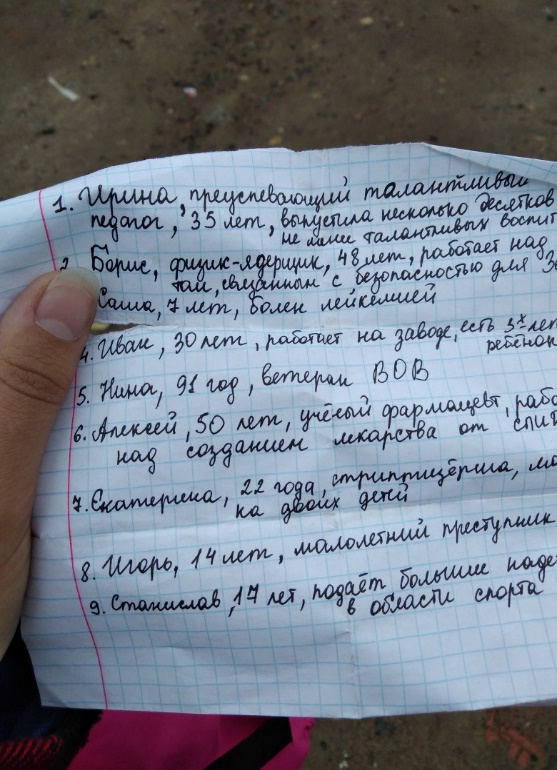 1. Ирина, преуспевающий талантливый
педагог, 35 лет, выпустила несколько десятков
не менее талантливых
Борис, физик-ядерщик, 48 лет, работает над
связанным с безопасностью для
Саша, 7 лет, болен лейкемией
4. Иван, 30 лет, работает на заводе, есть 3х
5. Нина, 91 год, ветеран ВОВ
6. Алексей, 50 лет, учёный фармацевт,
над созданием лекарства от
7. Екатерина, 22 года, стриптизёрша,
на двоих детей
8. Игорь, 14 лет, малолетний преступник
9. Станислав, 17 лет, подаёт большие
в области спорта